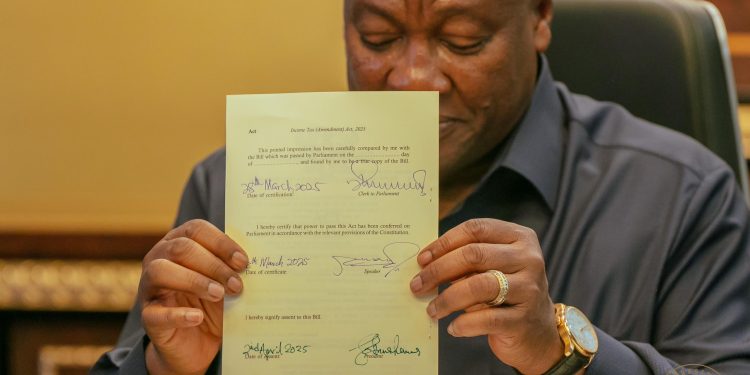 Act Income Tax (Amendment) Act, 2025
This printed impression has been carefully compared by me with
the Bill which was passed by Parliament on the .................. day
of .................., and found by me to be a true copy of the Bill.
28th March 2025
Date of certification Clerk to Parliament
I hereby certify that power to pass this Act has been conferred on
Parliament in accordance with the relevant provisions of the Constitution.
th March 2025
Date of certificate Speaker
I hereby signify assent to this Bill.
2nd April 2025
Date of Assent President